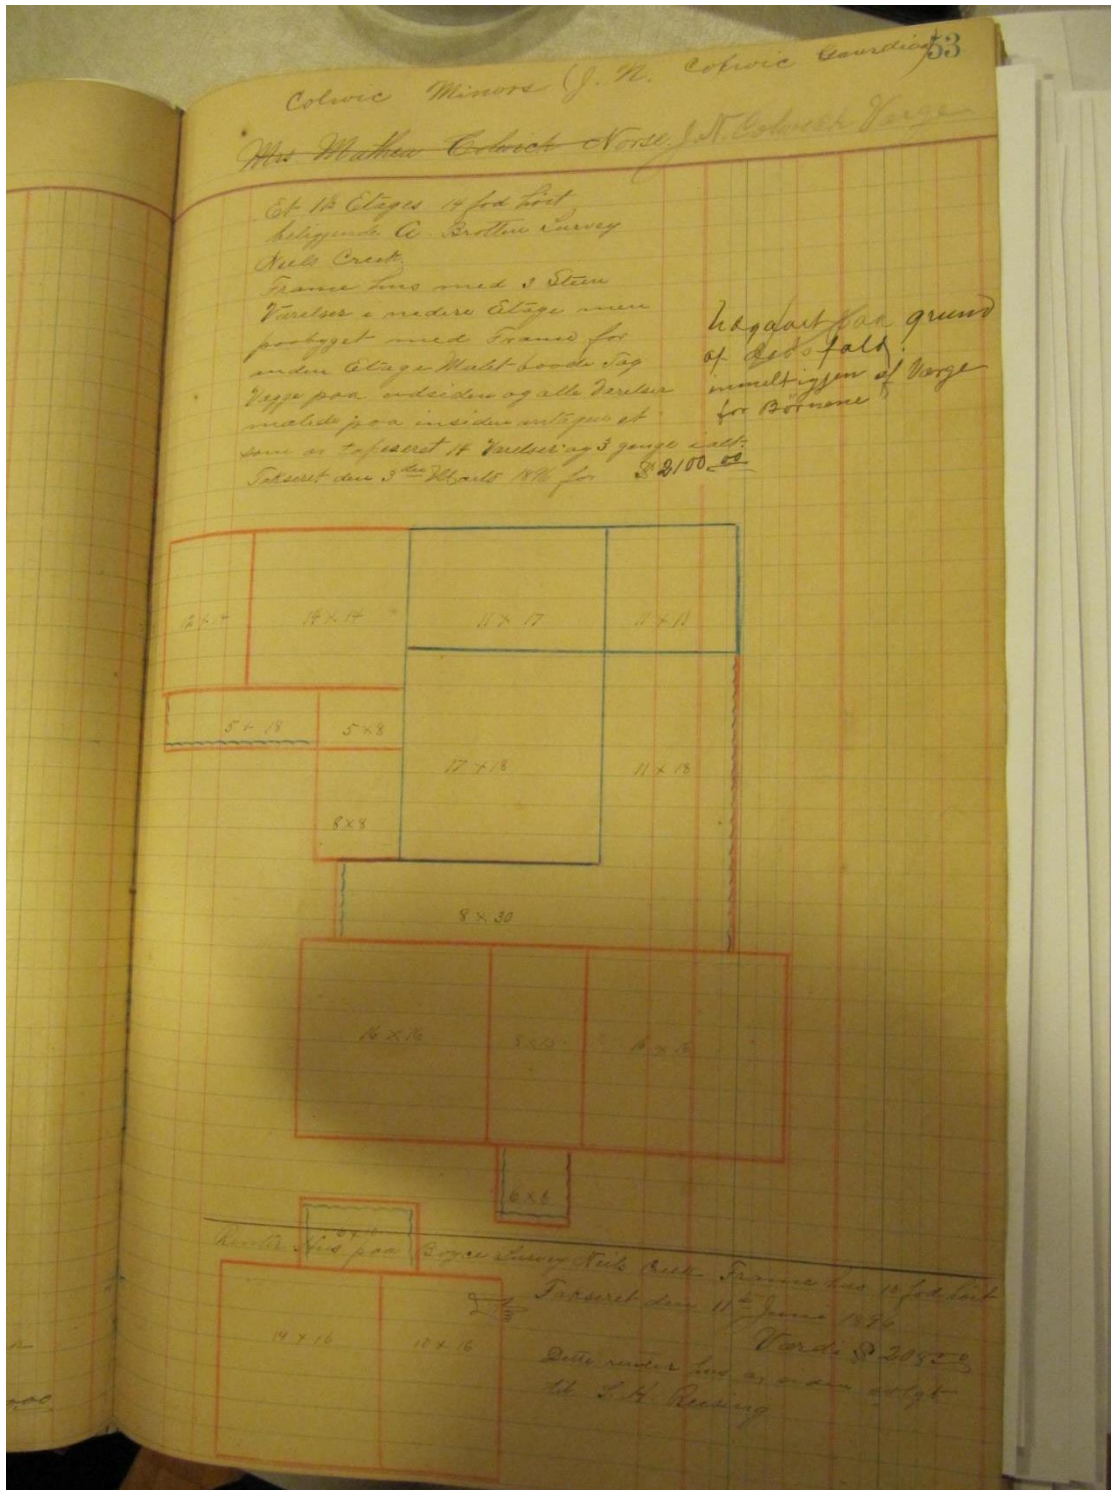 53
Colwic Minors (J. N. Colwic Gaurdian)
Mrs. Mathea Colwick Norse. J. N. Colwick Verge
Et 1½ Etages 14 fod höit
beliggende A. Brotten Survey
Neils Creek.
Frame hus med 3 Steen
Værelser i nedere Etage men
paabygget med Frame for
anden Etage Malet boade Tag
Vægge paa udsiden og alle Værelser
malede paa insiden et
som er tapeseret 14 Værelser og 3 gange i alt.
Takseret den 3 den Marts 1896 for $ 2100.00
paa grund
af
inmelt igjen af Værge
for Börnene
12 x 14
14 x 14
11 x 17
11 x 11
5 x 18
5 x 8
17 x 18
11 x 18
8 x 8
8 x 30
16 x 16
6 x 6
Renter Hus paa Boyce Survey Neils Creek Frame hus fod höit
Takseret den 11 te June 1896
Værdi $ 208
14 x 16
10 x 16
Dette renter hus er solgt
til
.00